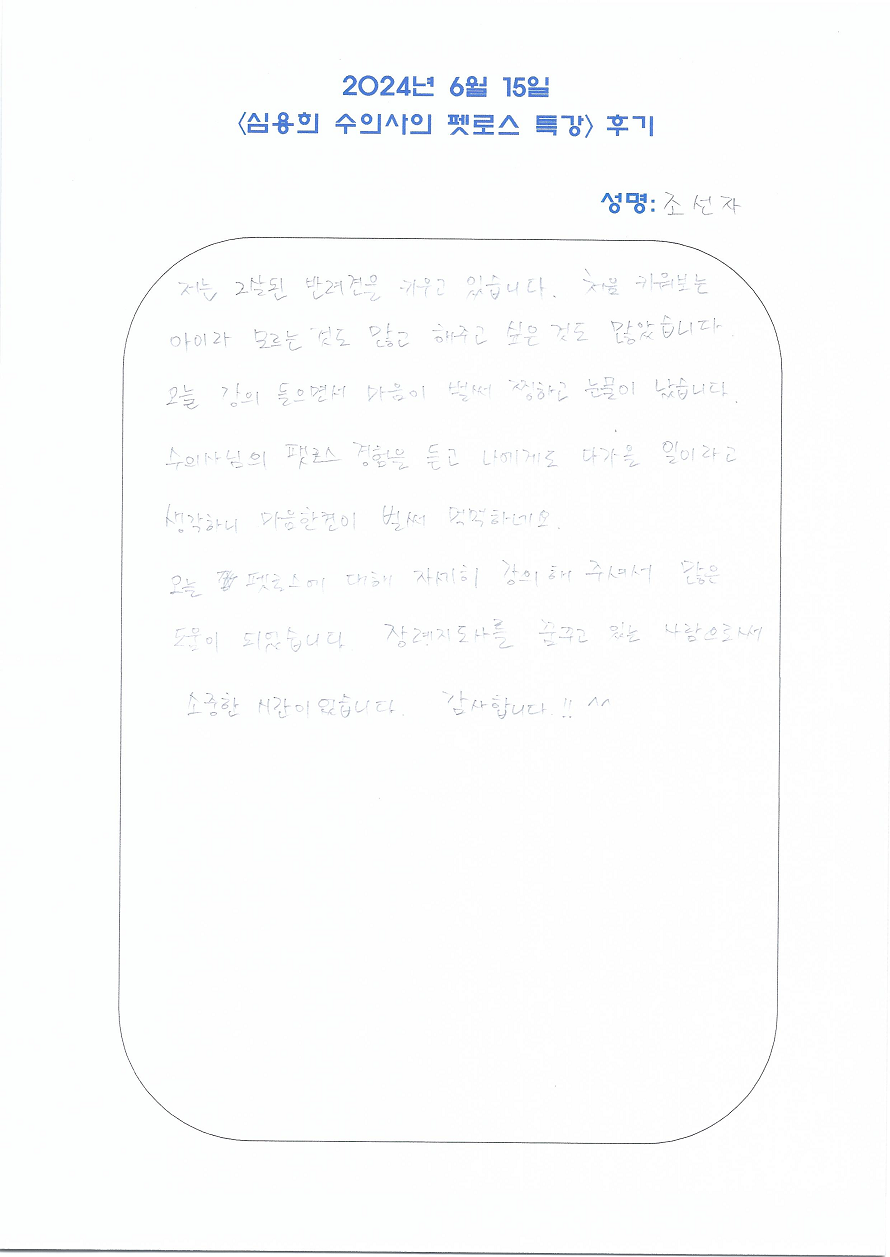 2024년 6월 15일
<심용희 수의사의 펫로스 특강> 후기
성명: 조선자
저는 2살된 반려견을 키우고 있습니다. 처음 키워보는
아이라 모르는 것도 많고 해주고 싶은 것도 많았습니다.
오늘 강의 들으면서 마음이 벌써 찡하고 눈물이 났습니다.
수의사님의 펫로스 경험을 듣고 나에게도 다가올 일이라고
생각하니 마음한켠이 벌써 먹먹하네요.
오늘 펫로스에 대해 자세히 강의해 주셔서 많은
도움이 되었습니다. 장례지도사를 꿈꾸고 있는 사람으로서
소중한 시간이 었습니다. 감사합니다.!! ^^